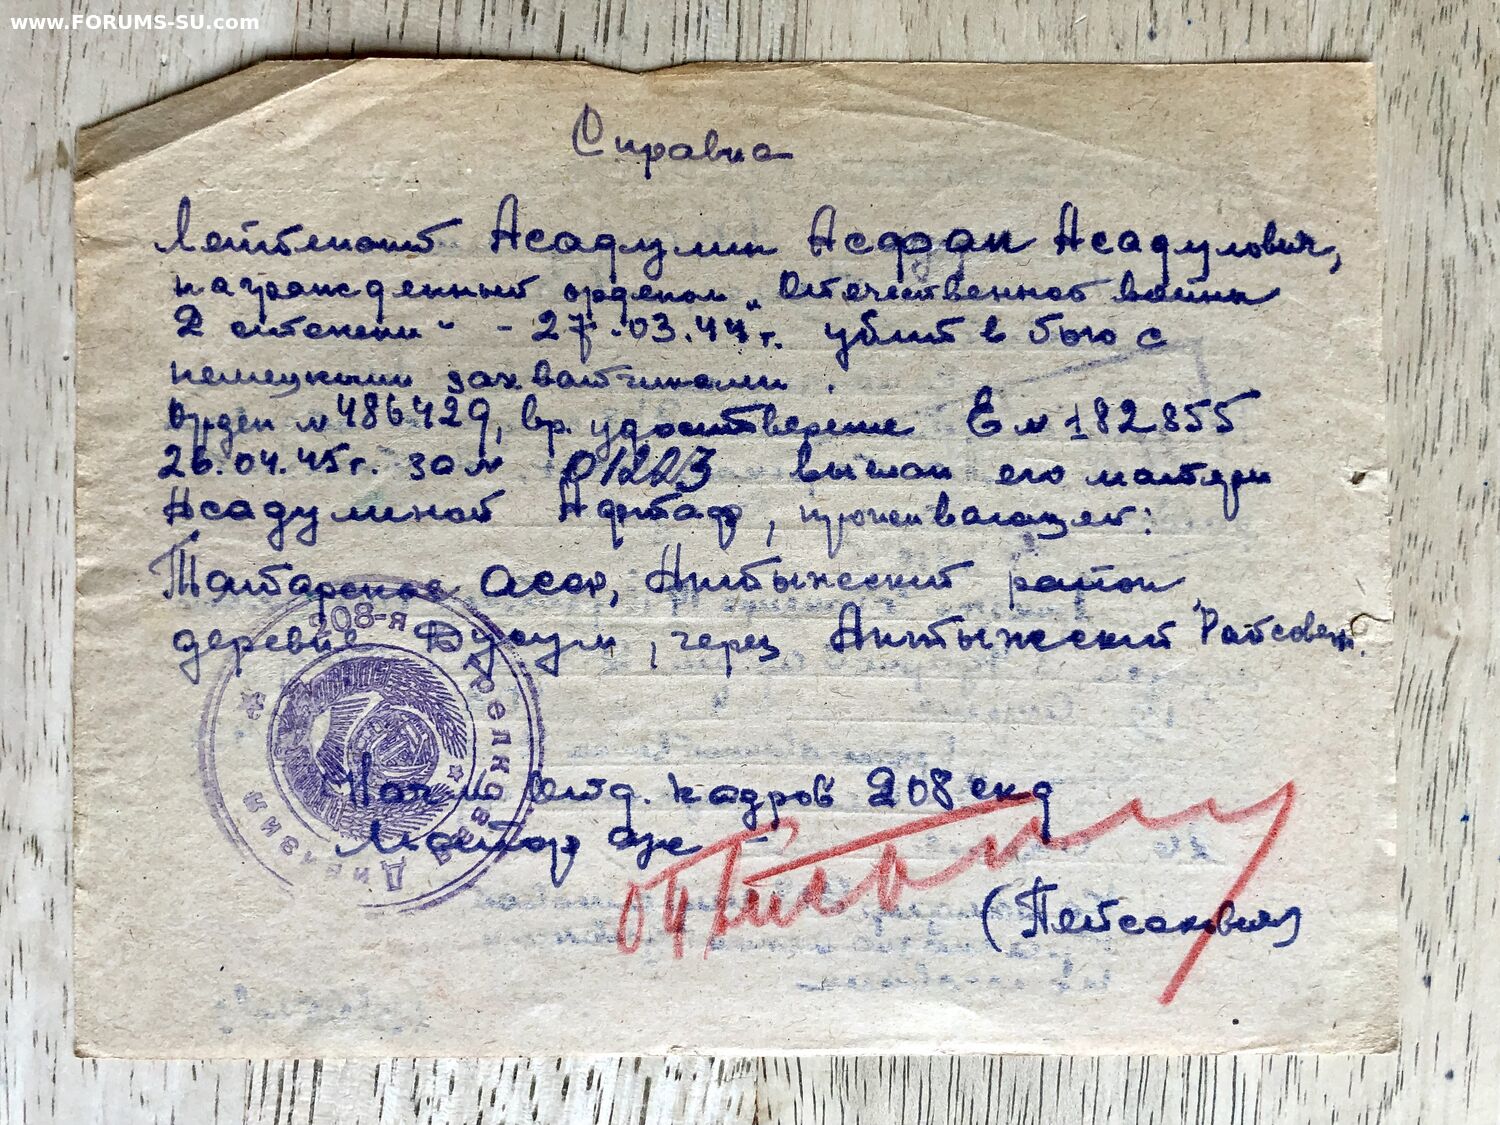 www.FORUMS-SU.com
Справка
Лейтенант Асадулин Асфдан Асадулович,
награжденный орденом „Отечественной войны
2 степени" - 27.03.44 г. убит в бою с
немецкими захватчиками.
Орден № 486429, вр. удостверение Е № 182855
26.04.45 г. за № 01223 выслан его матери
Асадулиной Афтаф, проживающей:
Татарская АССР, Актынский район,
деревне, через Актынский Райсовет.
208-я
Стрелковая Дивизия
Нач-к отд. кадров 208 скд
Майор а/с
(Пейсакович)